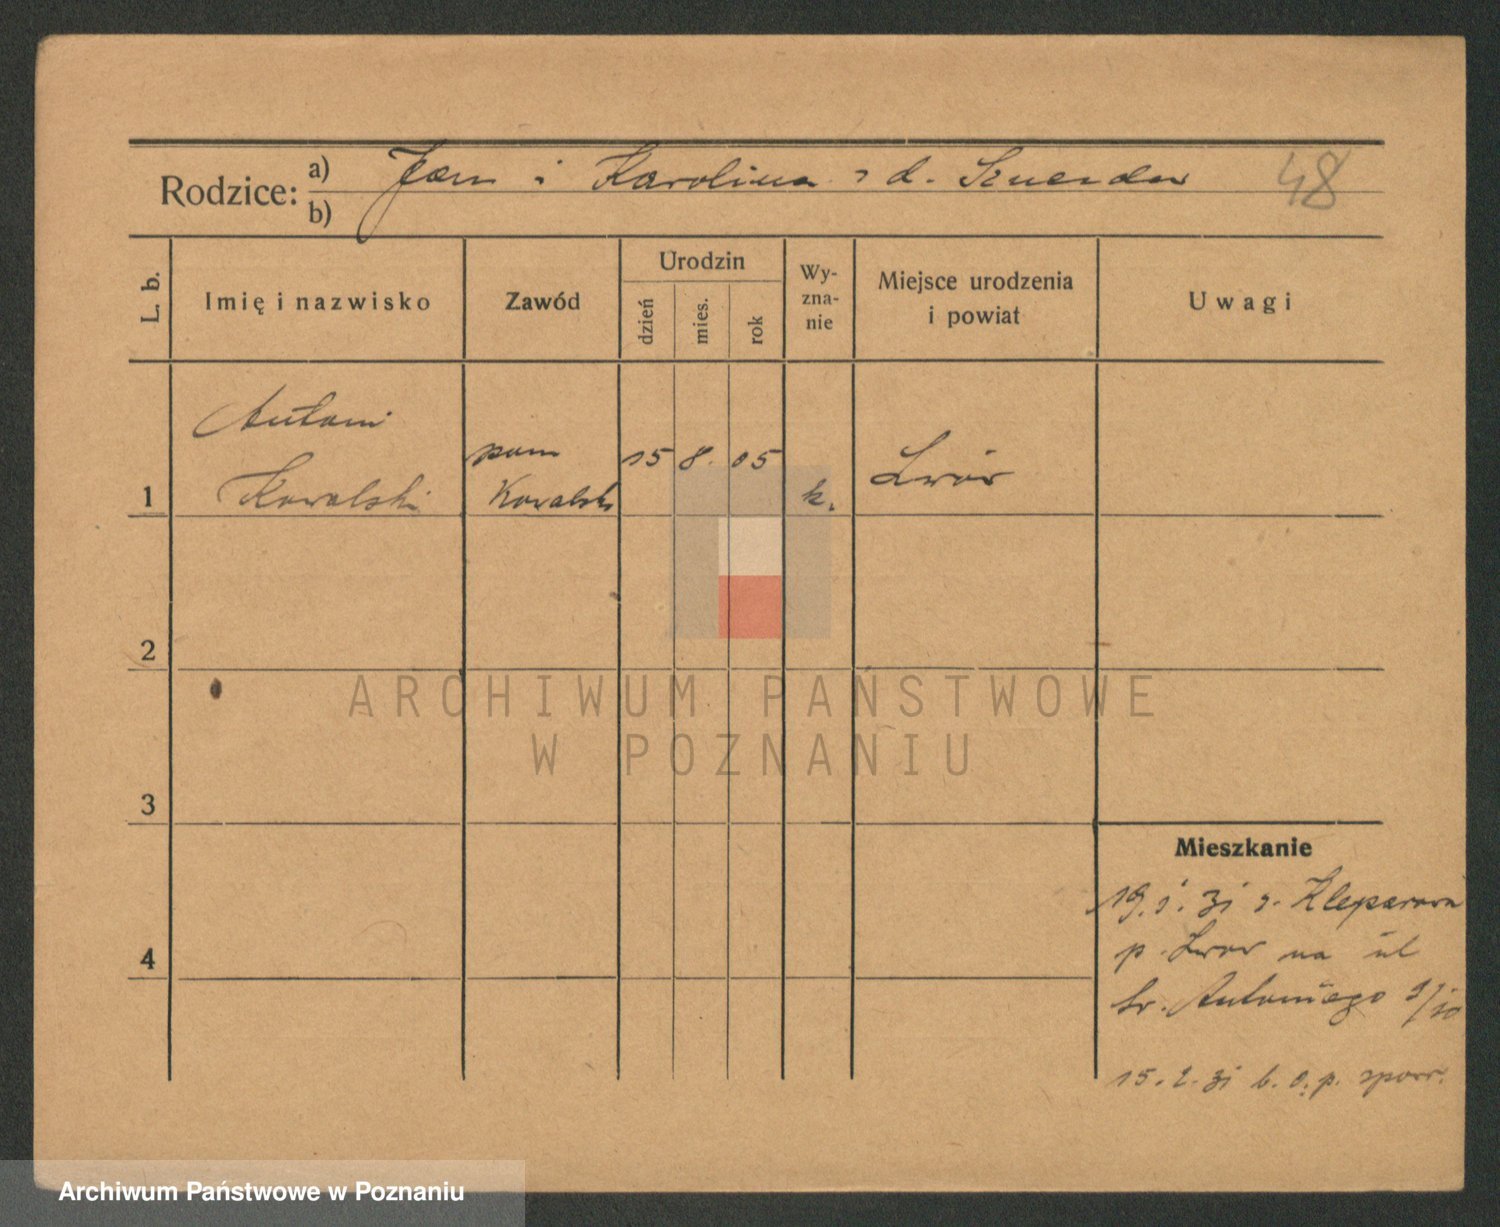 Rodzice: a) Jan i Karolina z d. 48
b)
L. b. Imię i nazwisko Zawód Urodzin dzień mies. rok Wy-zna-nie Miejsce urodzenia i powiat Uwagi
Antoni
1 Kowalski pom Kowalski 15 8. 05 k. Lwów
2
3
4
Mieszkanie
19.1.31 z. Kleparowa
p. Lwow na ul
św. Antoniego
15.2.31 b. o. p.
ARCHIWUM PAŃSTWOWE
W POZNANIU
Archiwum Państwowe w Poznaniu